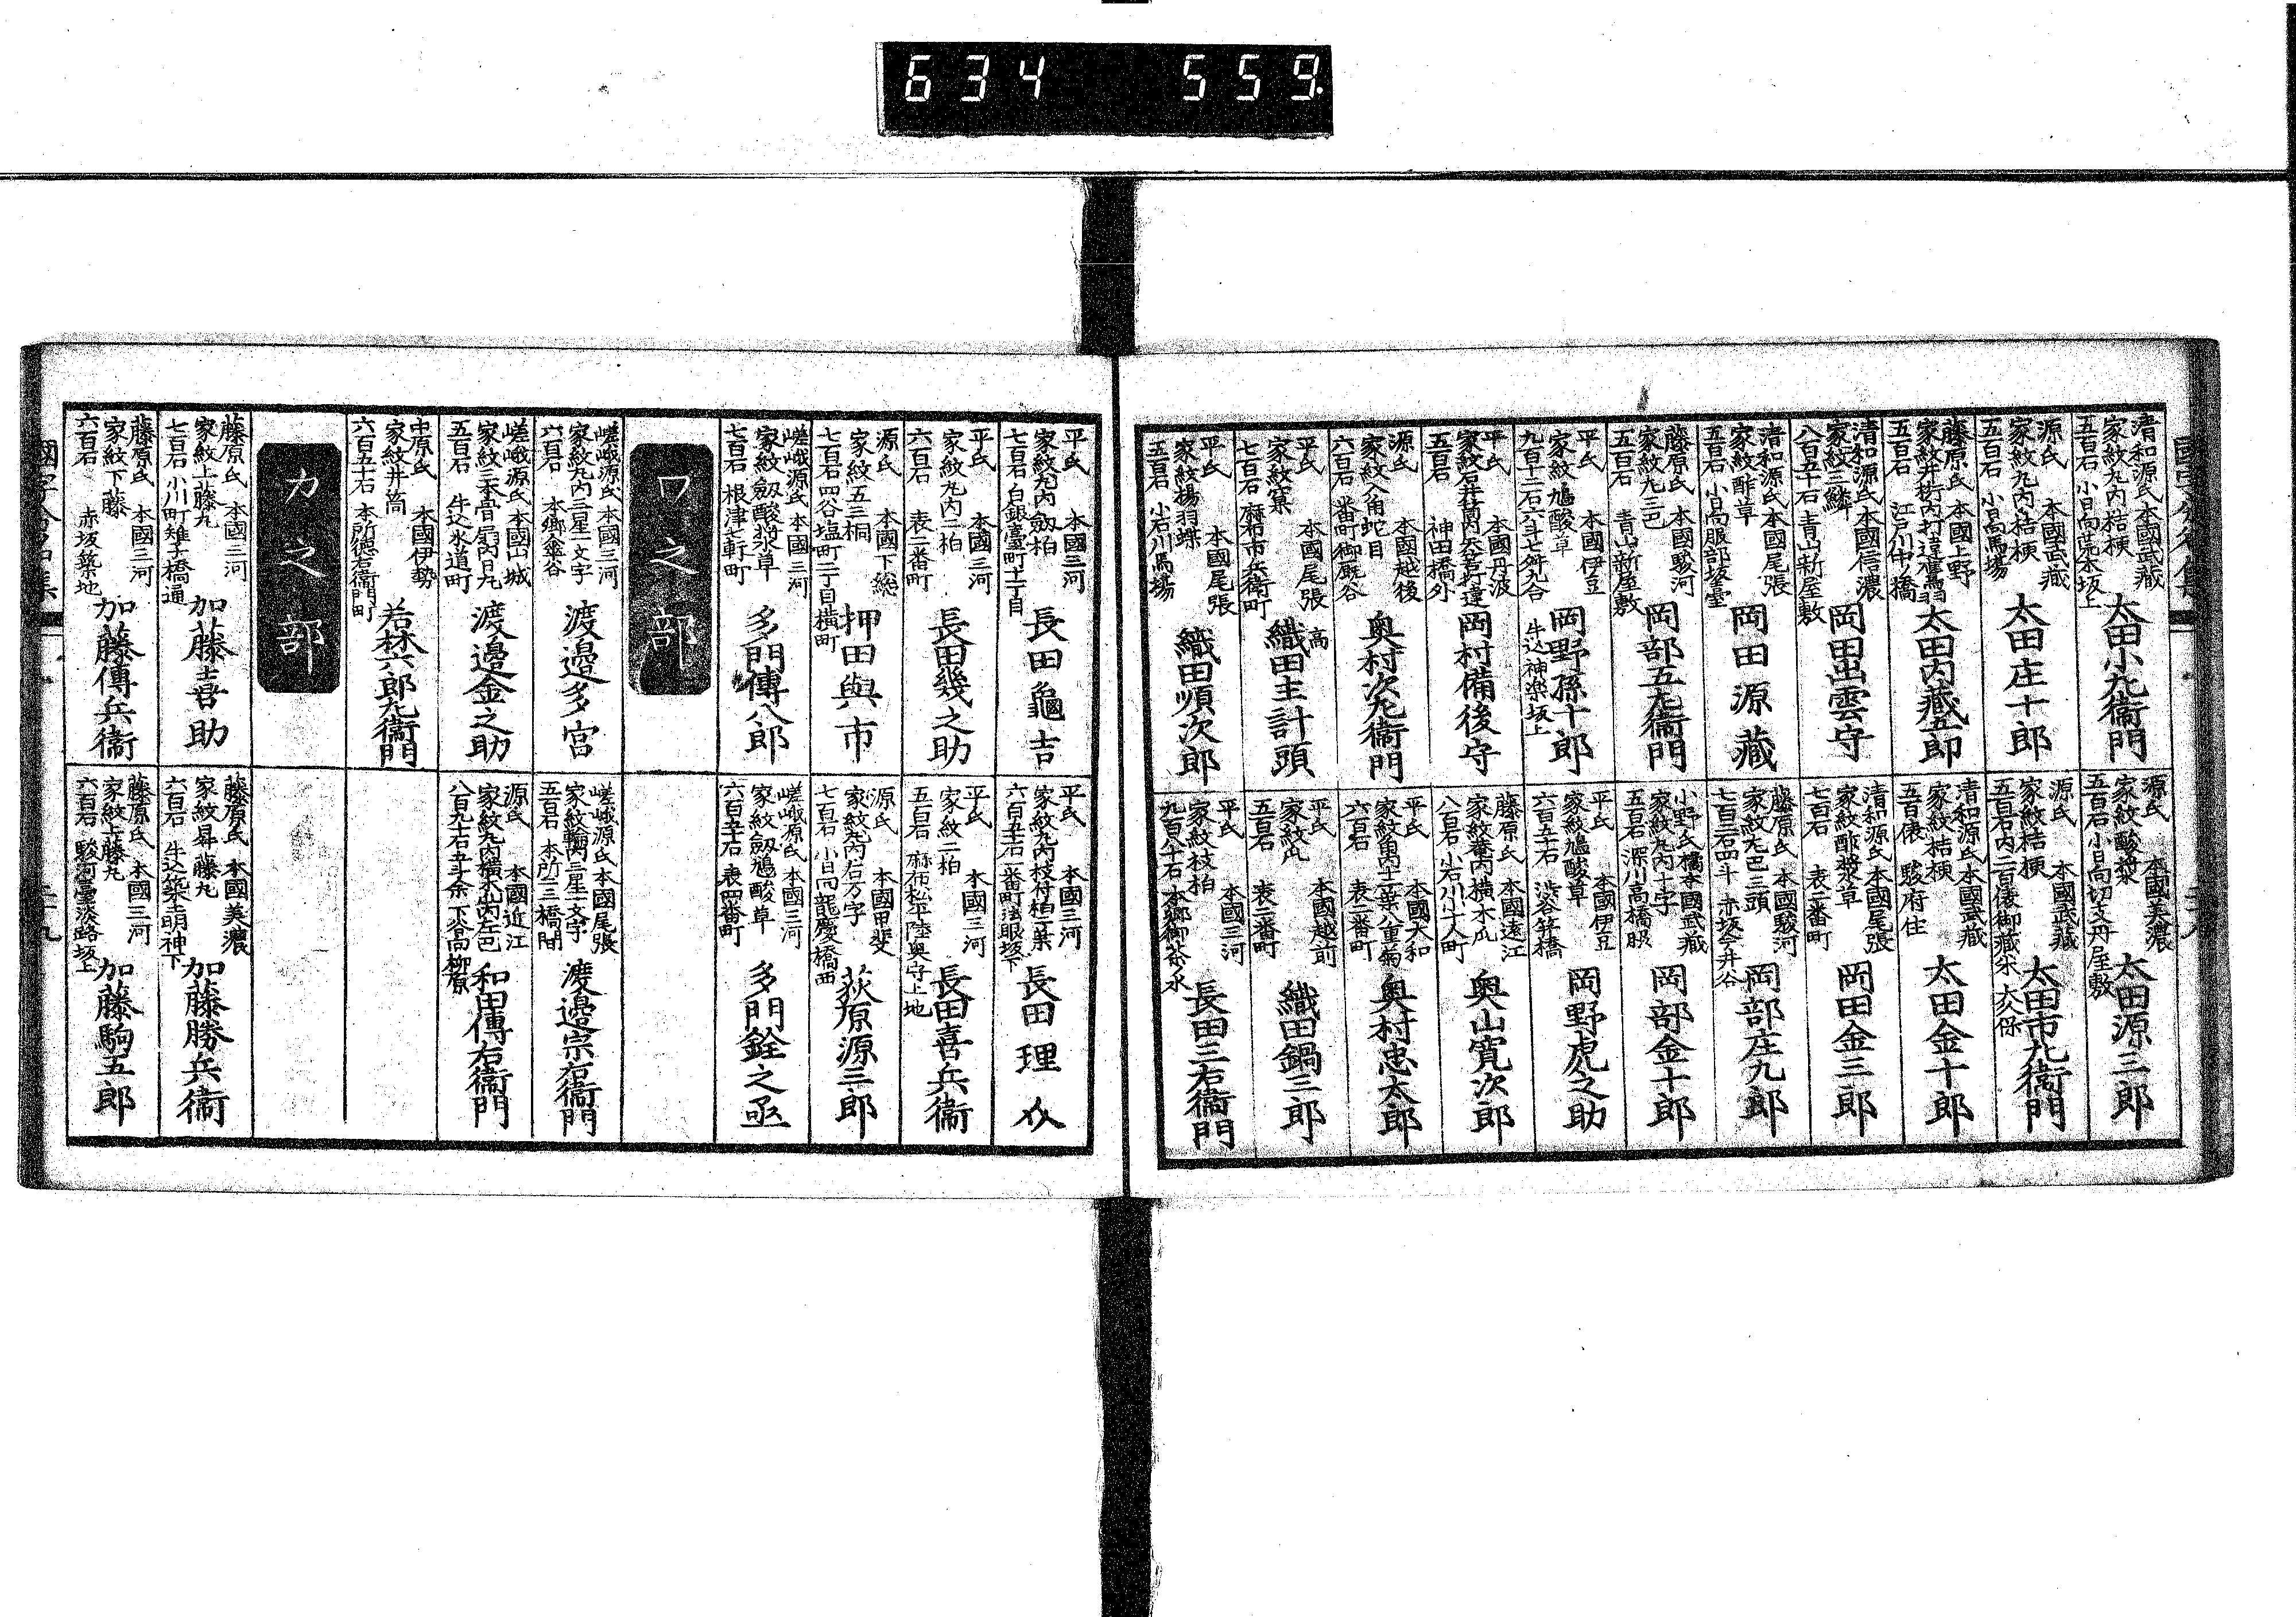 634 559
清和源氏 本國武蔵
家紋丸内桔梗
五百石 小日向茗荷坂上
太田小左衞門
源氏 本國武蔵
家紋丸内桔梗
五百石 小日向馬場
太田庄十郎
藤原氏 本國上野
五百石 江戸川中ノ橋
太田内藏五郎
清和源氏 本國信濃
家紋三鱗
八百五十石 青山新屋敷
岡田出雲守
清和源氏 本國尾張
家紋酢草
五百石 小日向服部坂臺
岡田源藏
藤原氏 本國駿河
家紋丸三巴
五百石 青山新屋敷
岡部五左衞門
平氏 本國伊豆
家紋鳩酸草
九百十二石六斗七舛九合 牛込神楽坂上
岡野孫十郎
平氏 本國丹波
五百石 神田橋外
岡村備後守
源氏 本國越後
家紋八角蛇目
六百石 番町御厩谷
奥村次左衞門
平氏 本國尾張
家紋窠
七百石 麻布市兵衞町
高
織田主計頭
平氏 本國尾張
家紋揚羽蝶
五百石 小石川馬場
織田順次郎
源氏 本國美濃
家紋酸漿
五百石 小日向切支丹屋敷
太田源三郎
源氏 本國武蔵
家紋桔梗
五百石内二百俵御藏米 大久保
太田市左衞門
清和源氏 本國武蔵
家紋桔梗
五百俵 駿府住
太田金十郎
清和源氏 本國尾張
家紋酢漿草
七百石 表二番町
岡田金三郎
藤原氏 本國駿河
家紋左巴三頭
七百三石四斗 赤坂今井谷
岡部庄九郎
小野氏橘本國武蔵
家紋丸内十字
五百石 深川高橋脇
岡部金十郎
平氏 本國伊豆
家紋鳩酸草
六百五十石 渋谷笄橋
岡野虎之助
藤原氏 本國遠江
家紋菴内横木瓜
八百石 小石川大人町
奥山寛次郎
平氏 本國大和
六百石 表二番町
奥村忠太郎
平氏 本國越前
家紋瓜
五百石 表二番町
織田鍋三郎
平氏 本國三河
家紋枝柏
九百八十石 本郷御茶水
長田三右衞門
平氏 本國三河
家紋丸内釼柏
七百石 白銀臺町十一丁目
長田龜吉
平氏 本國三河
家紋丸内二柏
六百石 表二番町
長田幾之助
源氏 本國下総
家紋五三桐
七百石 四谷塩町二丁目横町
押田與市
嵯峨源氏 本國三河
家紋釼酸漿草
七百石 根津七軒町
多門傳八郎
ワ之部
嵯峨源氏 本國三河
家紋丸内三星一文字
六百石 本郷傘谷
渡邉多宮
嵯峨源氏 本國山城
家紋三本骨扇内日丸
五百石 牛込水道町
渡邉金之助
中原氏 本國伊勢
家紋井筒
六百五十石 本所徳右衞門町
若林六郎左衞門
カ之部
藤原氏 本國三河
家紋上藤丸
七百石 小川町雉子橋通
加藤喜助
藤原氏 本國三河
家紋下藤
六百石 赤坂築地
加藤傳兵衞
平氏 本國三河
六百五十石 二番町法眼坂下
長田理介
平氏 本國三河
家紋二柏
五百石 麻布松平陸奥守上地
長田喜兵衞
源氏 本國甲斐
家紋丸内石万字
七百石 小日向龍慶橋西
荻原源三郎
嵯峨源氏 本國三河
家紋釼鳩酸草
六百五十石 表四番町
多門銓之丞
嵯峨源氏 本國尾張
家紋輪内三星一文字
五百石 本所二三橋間
渡邉宗右衞門
源氏 本國近江
八百九十石五斗余 下谷高柳原
和田傳右衞門
藤原氏 本國美濃
六百石 牛込築土明神下
加藤勝兵衞
藤原氏 本國三河
家紋上藤丸
六百石 駿河臺淡路坂上
加藤駒五郎